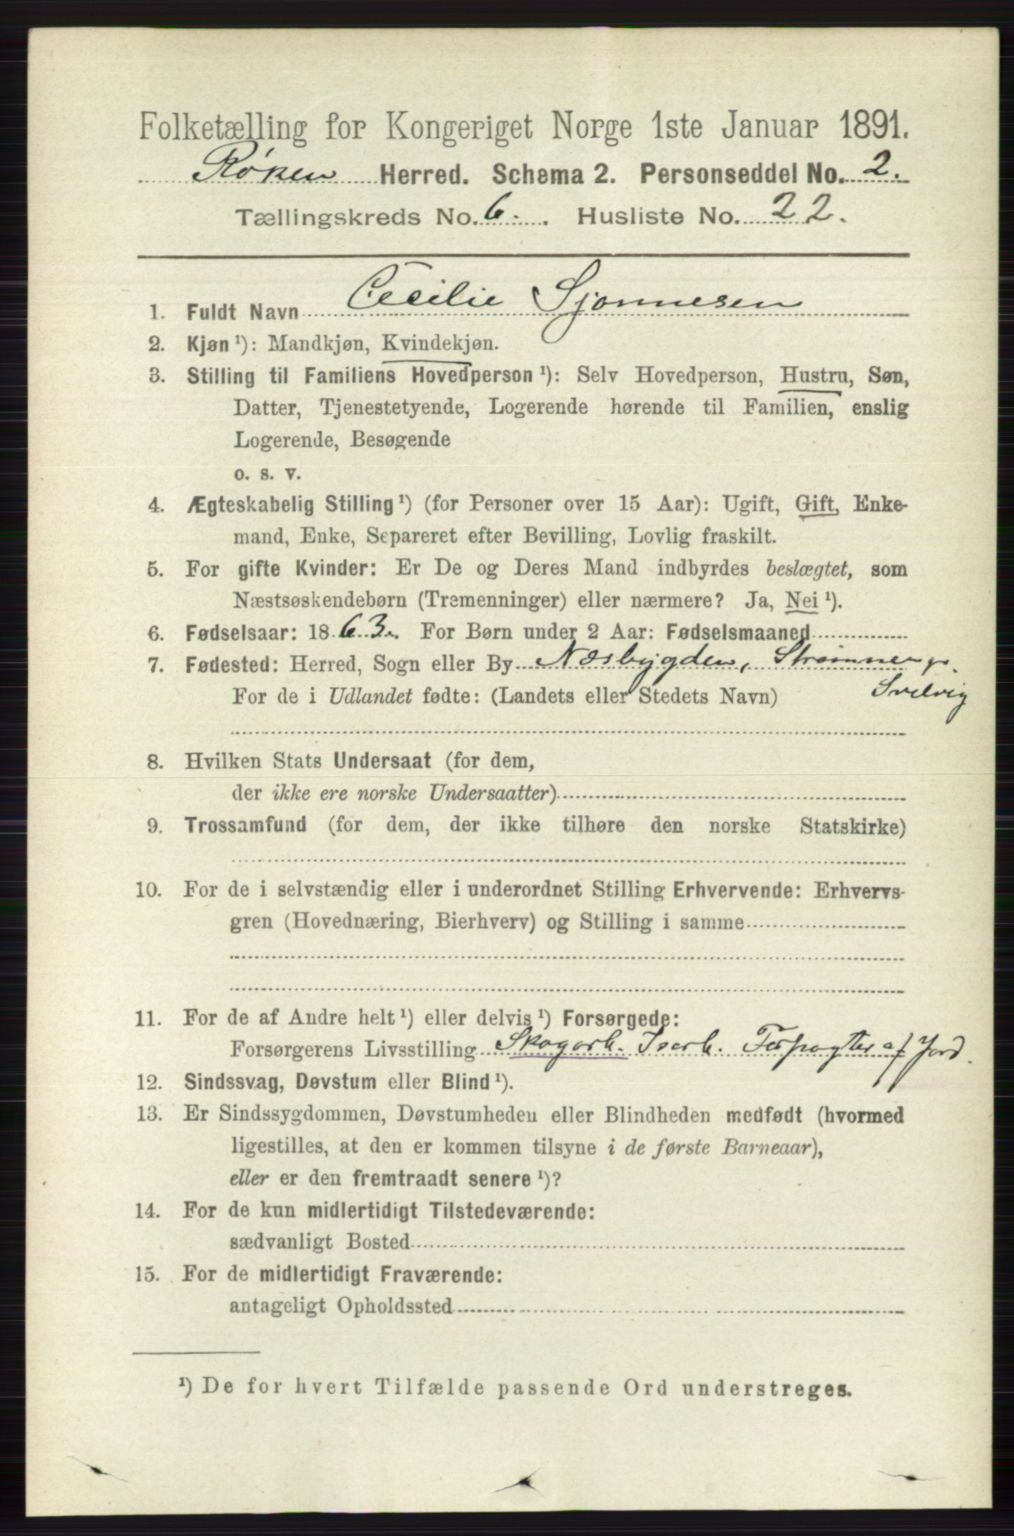 Folketælling for Kongeriget Norge 1ste Januar 1891.
Røken Herred. Schema 2. Personseddel No. 2.
Tællingskreds No. 6. Husliste No. 22.
1. Fuldt Navn Cecilie Sjonnesen
2. Kjøn ¹): Mandkjøn, Kvindekjøn.
3. Stilling til Familiens Hovedperson ¹): Selv Hovedperson, Hustru, Søn,
Datter, Tjenestetyende, Logerende hørende til Familien, enslig
Logerende, Besøgende
o. s. v.
4. Ægteskabelig Stilling ¹) (for Personer over 15 Aar): Ugift, Gift, Enke-
mand, Enke, Separeret efter Bevilling, Lovlig fraskilt.
5. For gifte Kvinder: Er De og Deres Mand indbyrdes beslægtet, som
Næstsøskendebørn (Tremenninger) eller nærmere? Ja, Nei ¹).
6. Fødselsaar: 1863. For Børn under 2 Aar: Fødselsmaaned
7. Fødested: Herred, Sogn eller By Næsbygden, Strømme
For de i Udlandet fødte: (Landets eller Stedets Navn) Svelvig
8. Hvilken Stats Undersaat (for dem,
der ikke ere norske Undersaatter)
9. Trossamfund (for dem, der ikke tilhøre den norske Statskirke)
10. For de i selvstændig eller i underordnet Stilling Erhvervende: Erhvervs-
gren (Hovednæring, Bierhverv) og Stilling i samme
11. For de af Andre helt ¹) eller delvis ¹) Forsørgede:
Forsørgerens Livsstilling Skogarb. Iserb. Forpagter af Jord.
12. Sindssvag, Døvstum eller Blind ¹).
13. Er Sindssygdommen, Døvstumheden eller Blindheden medfødt (hvormed
ligestilles, at den er kommen tilsyne i de første Barneaar),
eller er den fremtraadt senere ¹)?
14. For de kun midlertidigt Tilstedeværende:
sædvanligt Bosted
15. For de midlertidigt Fraværende:
antageligt Opholdssted
¹) De for hvert Tilfælde passende Ord understreges.